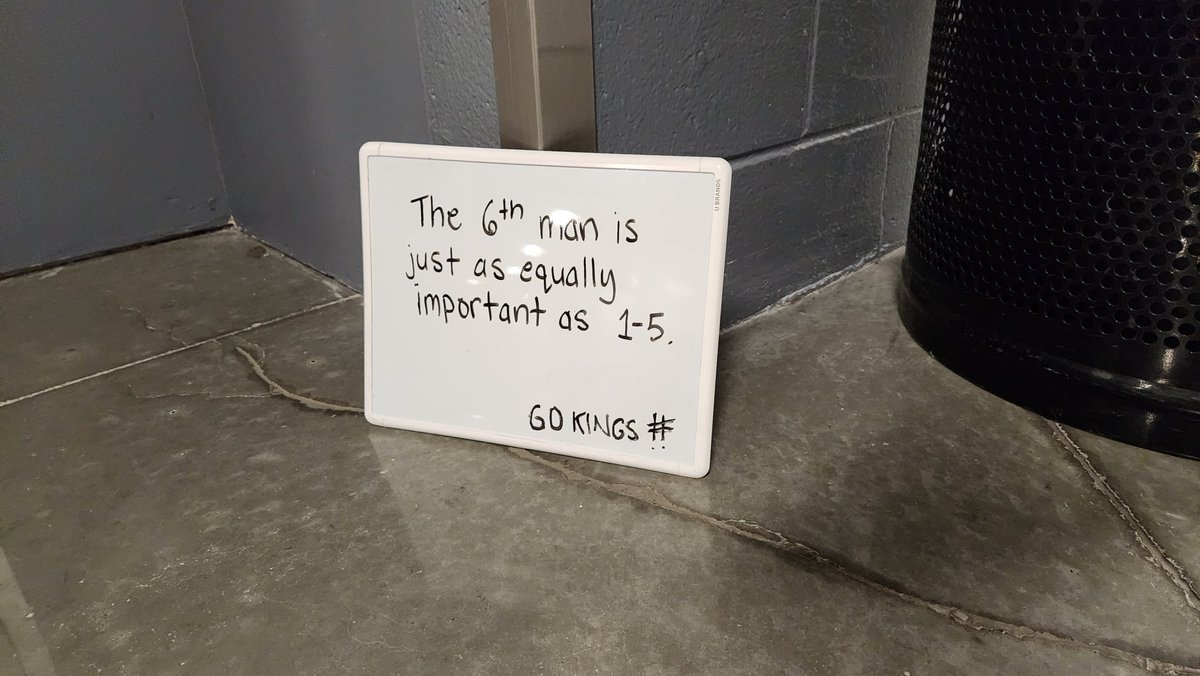 The 6th man is
just as equally
important as 1-5.
GO KINGS #
U BRANDS